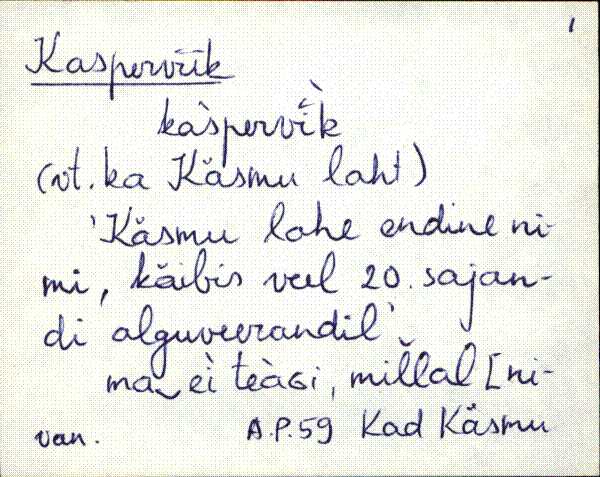 1
Kaspervīk
kàspervī̀k
(vt. ka Käsmu laht)
'Käsmu lahe endine ni-
mi, käibis veel 20. sajan-
di alguveerandil'
ma‿eì teàGi, millal [ni-
van. A.P.59 Kad Käsmu